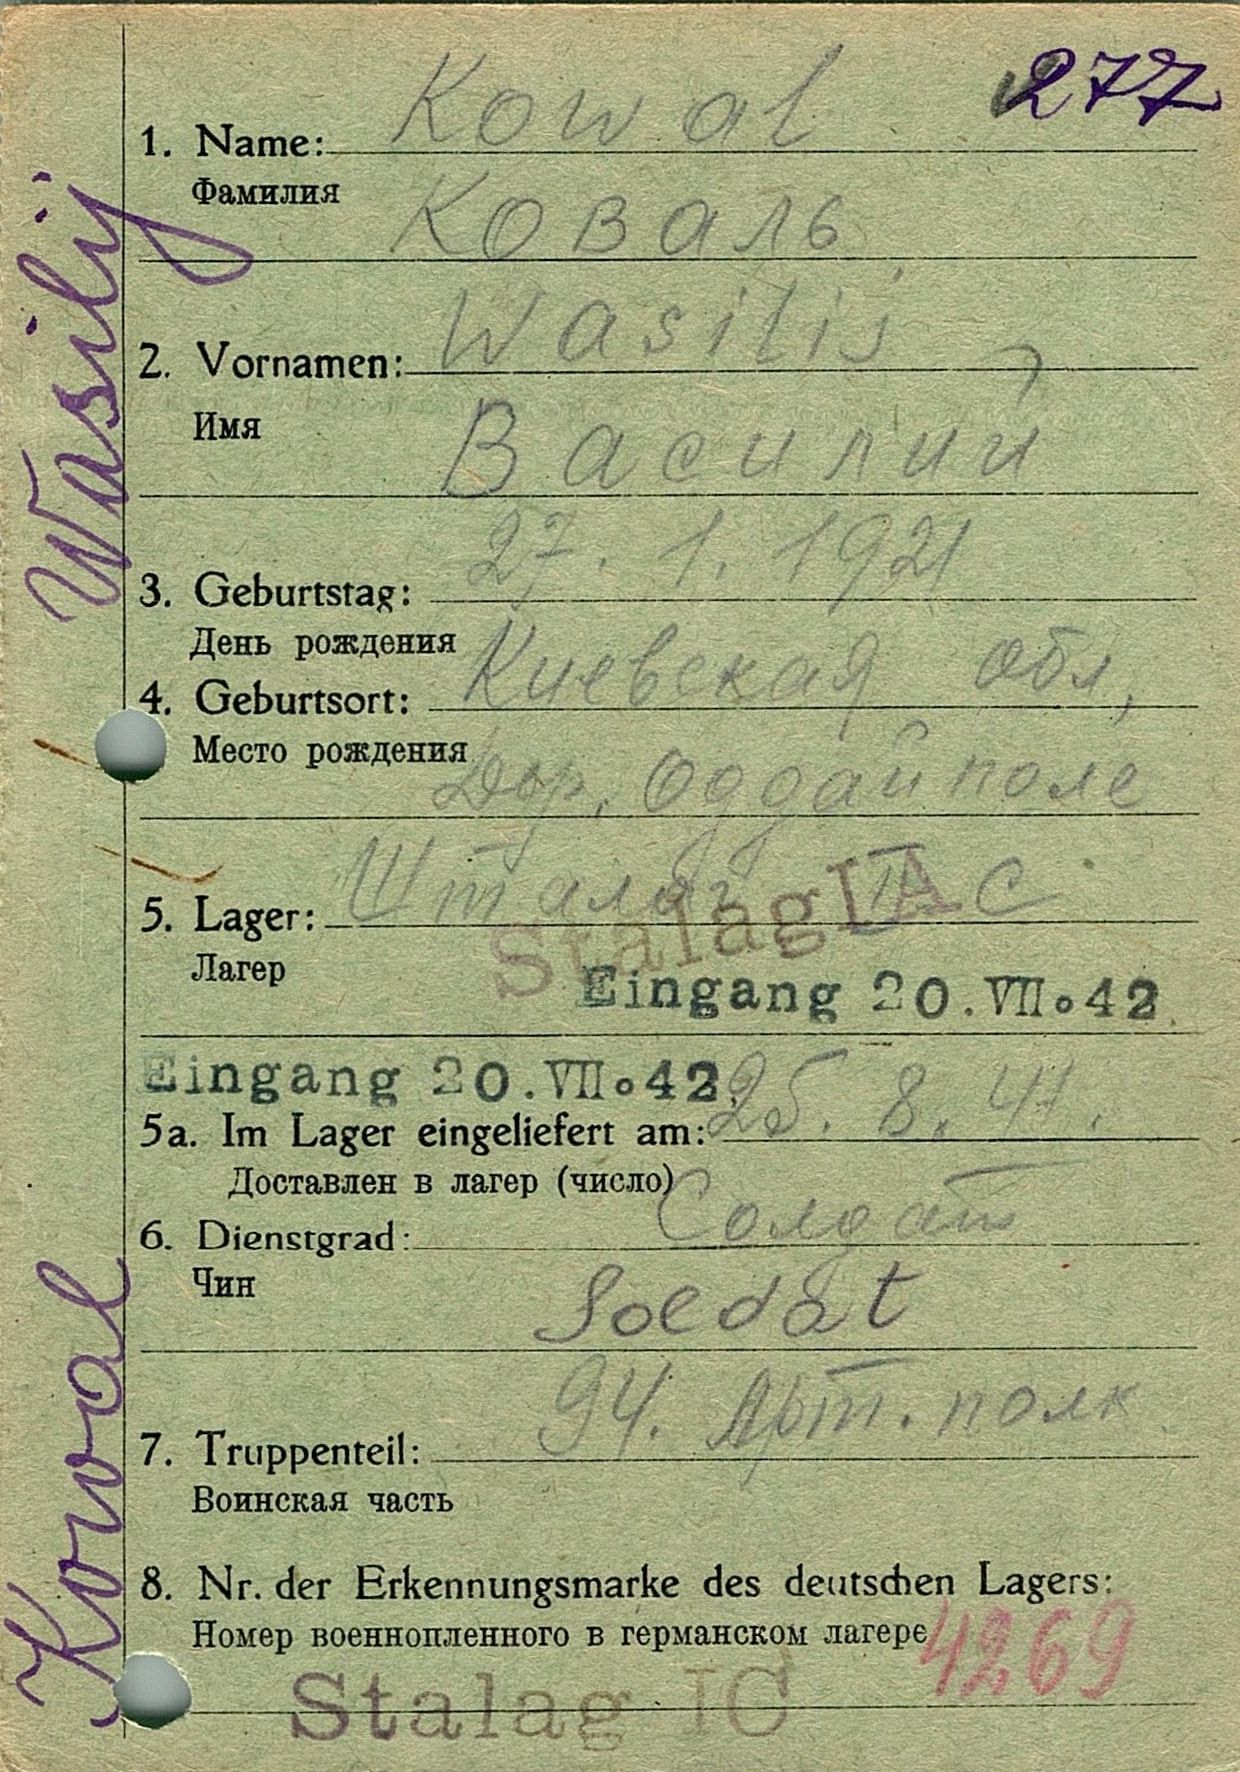 277
1. Name: Kowal
Фамилия
Коваль
2. Vornamen: Wasilij
Имя
Василий
3. Geburtstag: 27. 1. 1921
День рождения
4. Geburtsort: Киевская обл,
Место рождения
Дер. Оддайполе
5. Lager: Шталаг I C
Stalag I A
Лагер
Eingang 20.VII.42
Eingang 20.VII.42.
5a. Im Lager eingeliefert am: 25. 8. 41.
Доставлен в лагер (число)
6. Dienstgrad: Солдат
Чин
Soldat
7. Truppenteil: 94. Арт. полк
Воинская часть
8. Nr. der Erkennungsmarke des deutschen Lagers:
Номер военнопленного в германском лагере 4269
Stalag IC
Kowal Wasilij